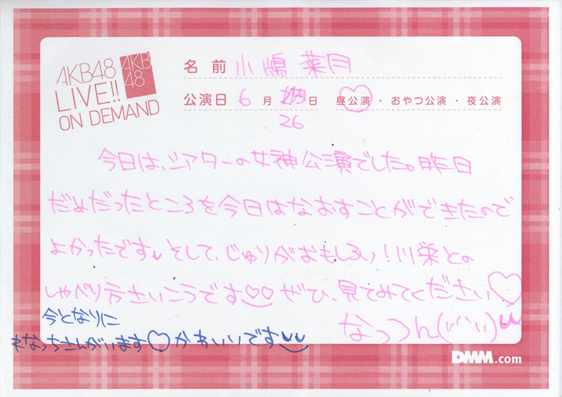 AKB48
LIVE!!
ON DEMAND
AKB
48
名前 小嶋 菜月
公演日 6月 日 昼公演・おやつ公演・夜公演
26
今日は、シアターの女神公演でした。昨日
だめだったところを今日はなおすことができたので
よかったです そして、じゅりがおもしろい!川栄との
しゃべり方さいこうです♡♡ ぜひ、見てみてください♡
今となりに
なっちさんがいます♡かわいいです
なっつん
DMM.com